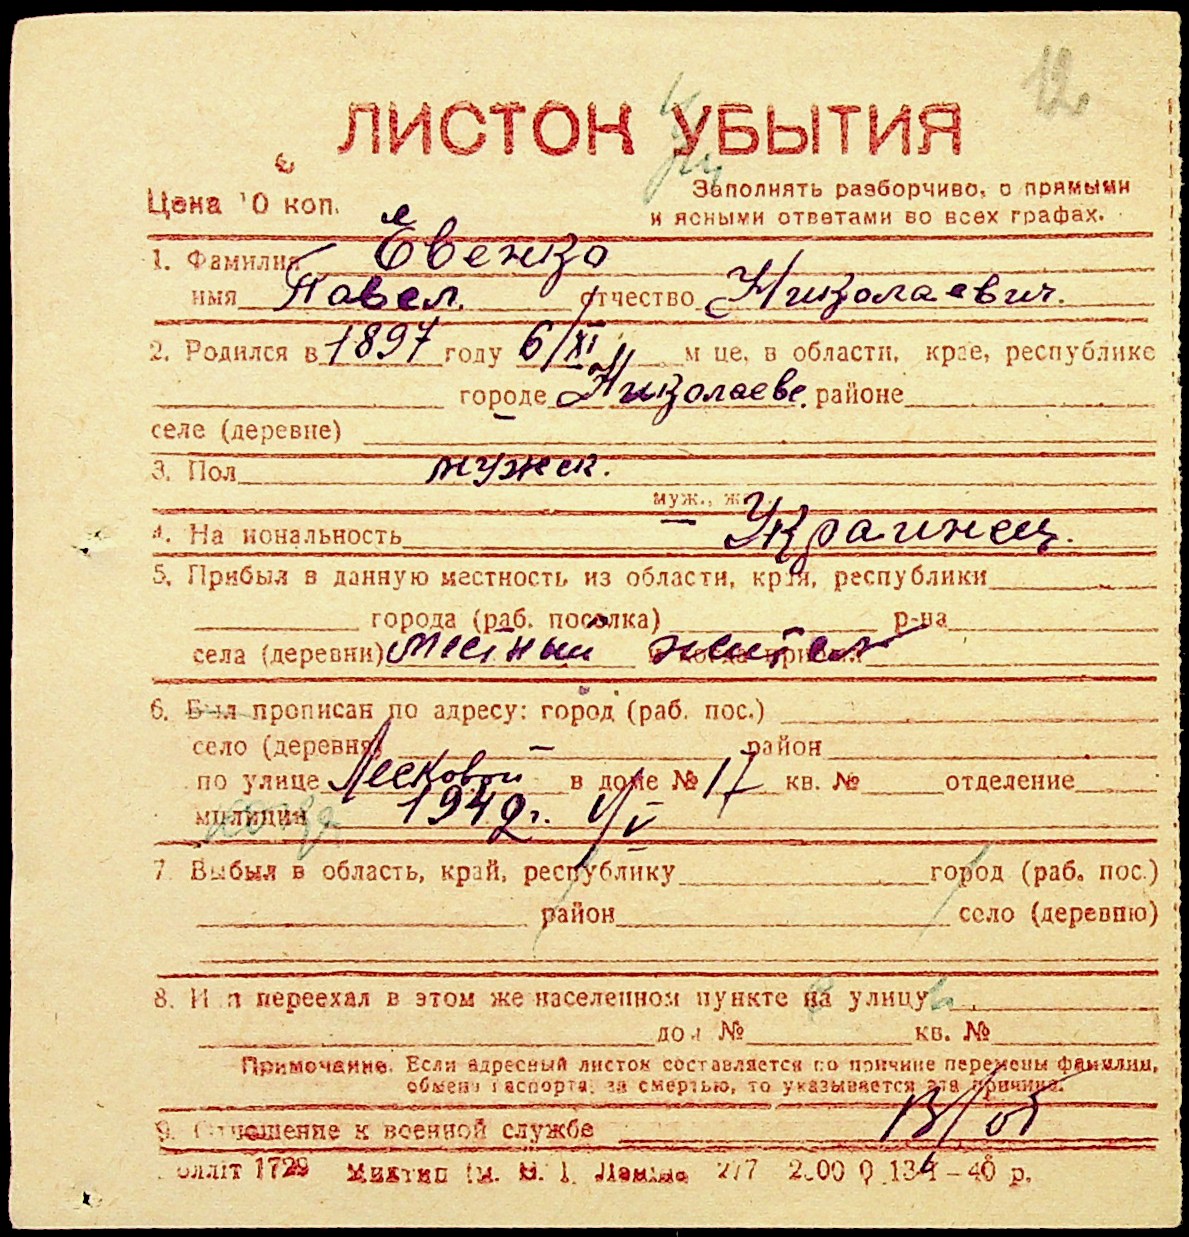 12.
ЛИСТОК УБЫТИЯ
Цена 10 коп.
Заполнять разборчиво, с прямыми
и ясными ответами во всех графах.
1. Фамилия Евенко
имя Павел. отчество Николаевич.
2. Родился в 1897 году 6/XI м це, в области, крае, республике
городе Николаеве. районе
селе (деревне)
3. Пол мужск.
муж., ж
4. На иональность Украинец.
5. Прибыл в данную местность из области, края, республики
города (раб. посёлка) р-на
села (деревни) местный житель
6. Был прописан по адресу: город (раб. пос.)
село (деревня) район
по улице Лесковой в доме № 17 кв. № отделение
милиции 1942г. V
7. Выбыл в область, край, республику город (раб. пос.)
район село (деревню)
8. И п переехал в этом же населенном пункте на улицу
дом № кв. №
Примечание. Если адресный листок составляется по причине перемены фамилии,
обмена паспорта, за смертью, то указывается эта причина.
9. Отношение к военной службе В/об
олліт 1729 277 2.00 0 134-40 р.